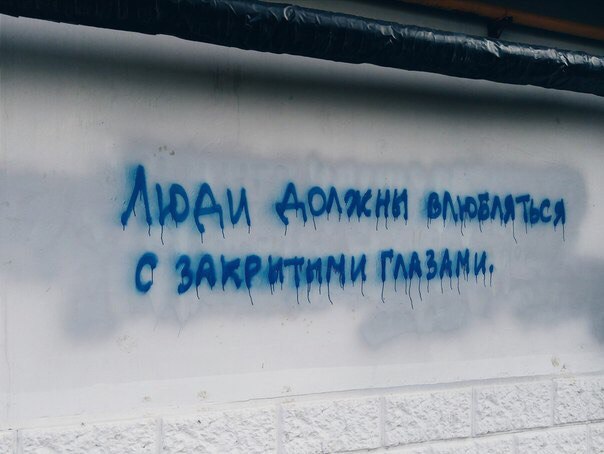 Люди должны влюбляться
с закрытыми глазами.